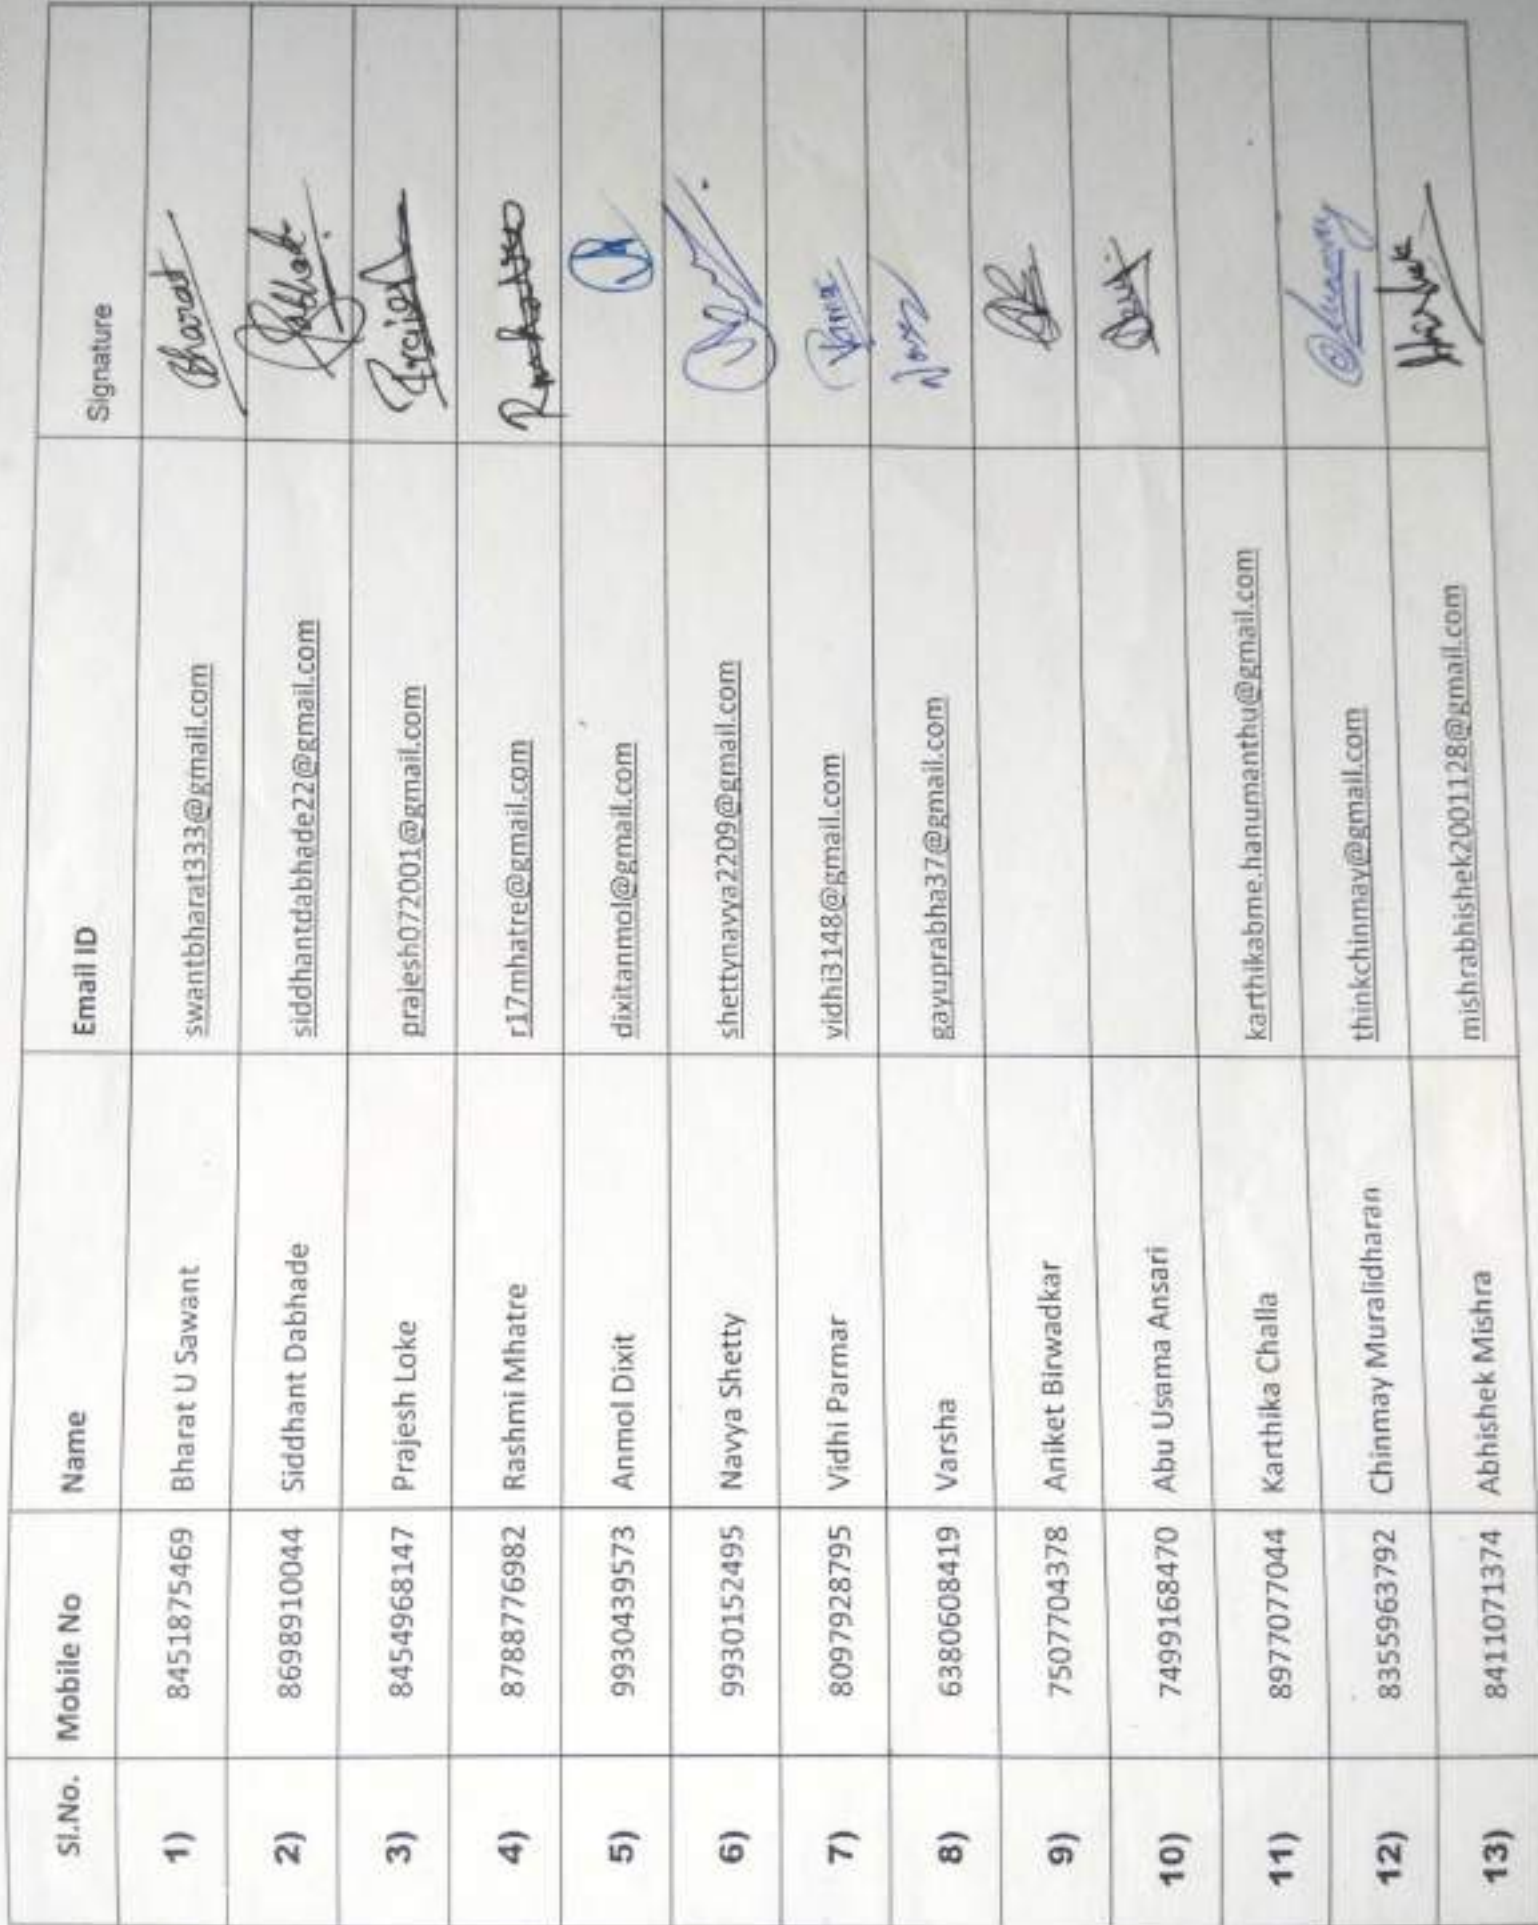 Sl.No. Mobile No Name Email ID Signature
1) 8451875469 Bharat U Sawant swantbharat333@gmail.com Bharat
2) 8698910044 Siddhant Dabhade siddhantdabhade22@gmail.com
3) 8454968147 Prajesh Loke prajesh072001@gmail.com
4) 8788776982 Rashmi Mhatre r17mhatre@gmail.com
5) 9930439573 Anmol Dixit dixitanmol@gmail.com
6) 9930152495 Navya Shetty shettynavya2209@gmail.com
7) 8097928795 Vidhi Parmar vidhi3148@gmail.com
8) 6380608419 Varsha gayuprabha37@gmail.com
9) 7507704378 Aniket Birwadkar
10) 7499168470 Abu Usama Ansari
11) 8977077044 Karthika Challa karthikabme.hanumanthu@gmail.com
12) 8355963792 Chinmay Muralidharan thinkchinmay@gmail.com
13) 8411071374 Abhishek Mishra mishrabhishek2001128@gmail.com